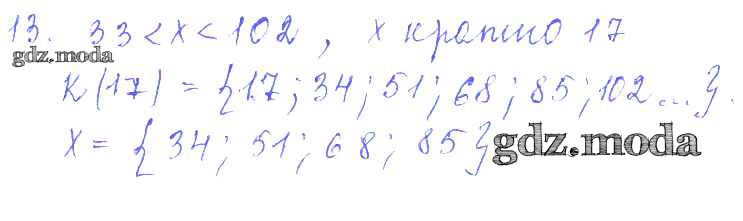 13. 33 < x < 102, x кратно 17
gdz.moda
K(17) = {17; 34; 51; 68; 85; 102...}.
X = {34; 51; 68; 85}
gdz.moda